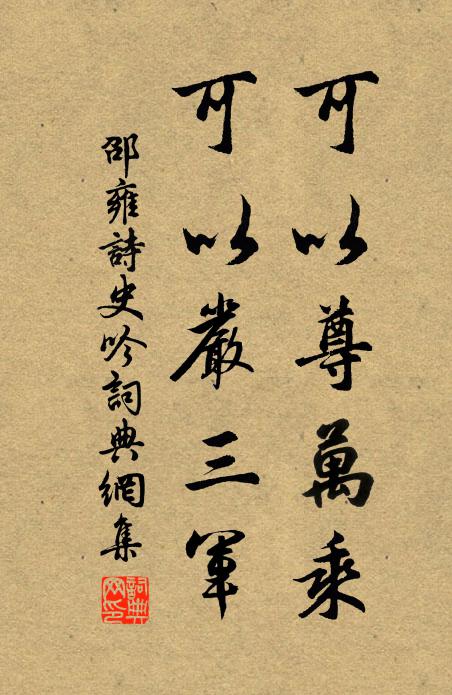 可以尊萬乘
可以嚴三軍
邵雍詩史吟詞典網集
詞典網印